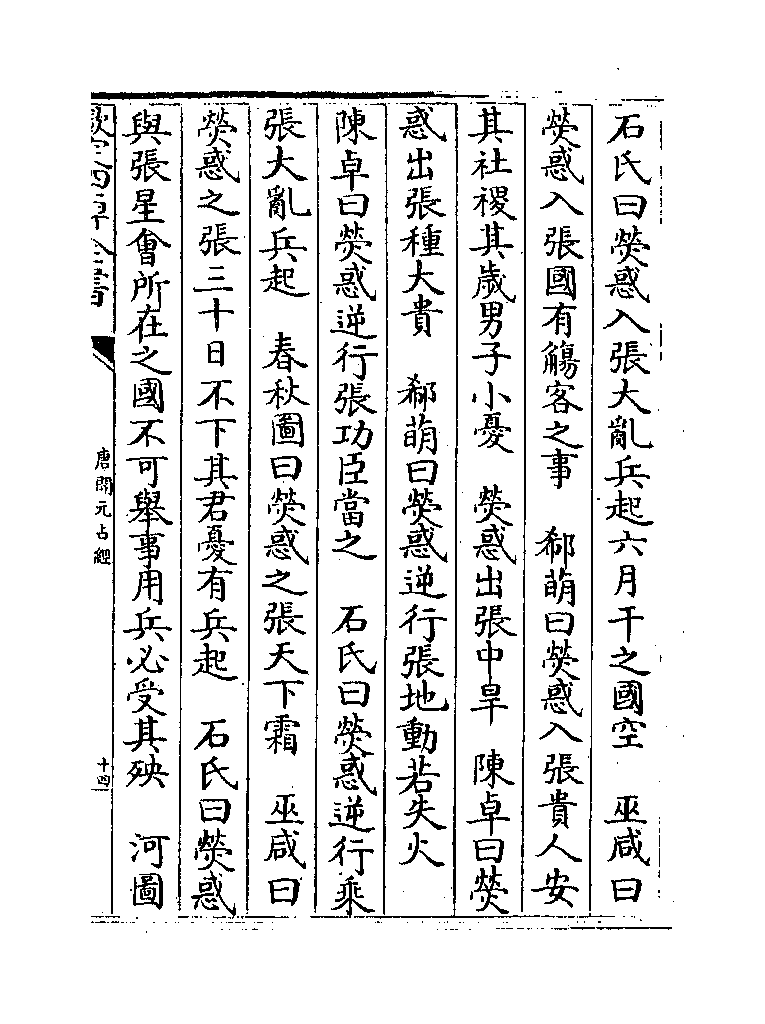 石氏曰熒惑入張大亂兵起六月干之國空　巫咸曰
熒惑入張國有觴客之事　郗萌曰熒惑入張貴人安
其社稷其歲男子小憂　熒惑出張中旱　陳卓曰熒
惑出張種大貴　郗萌曰熒惑逆行張地動若失火
陳卓曰熒惑逆行張功臣當之　石氏曰熒惑逆行乘
張大亂兵起　春秋圖曰熒惑之張天下霜　巫咸曰
熒惑之張三十日不下其君憂有兵起　石氏曰熒惑
與張星會所在之國不可舉事用兵必受其殃　河圖
欽定四庫全書
唐開元占經
十四